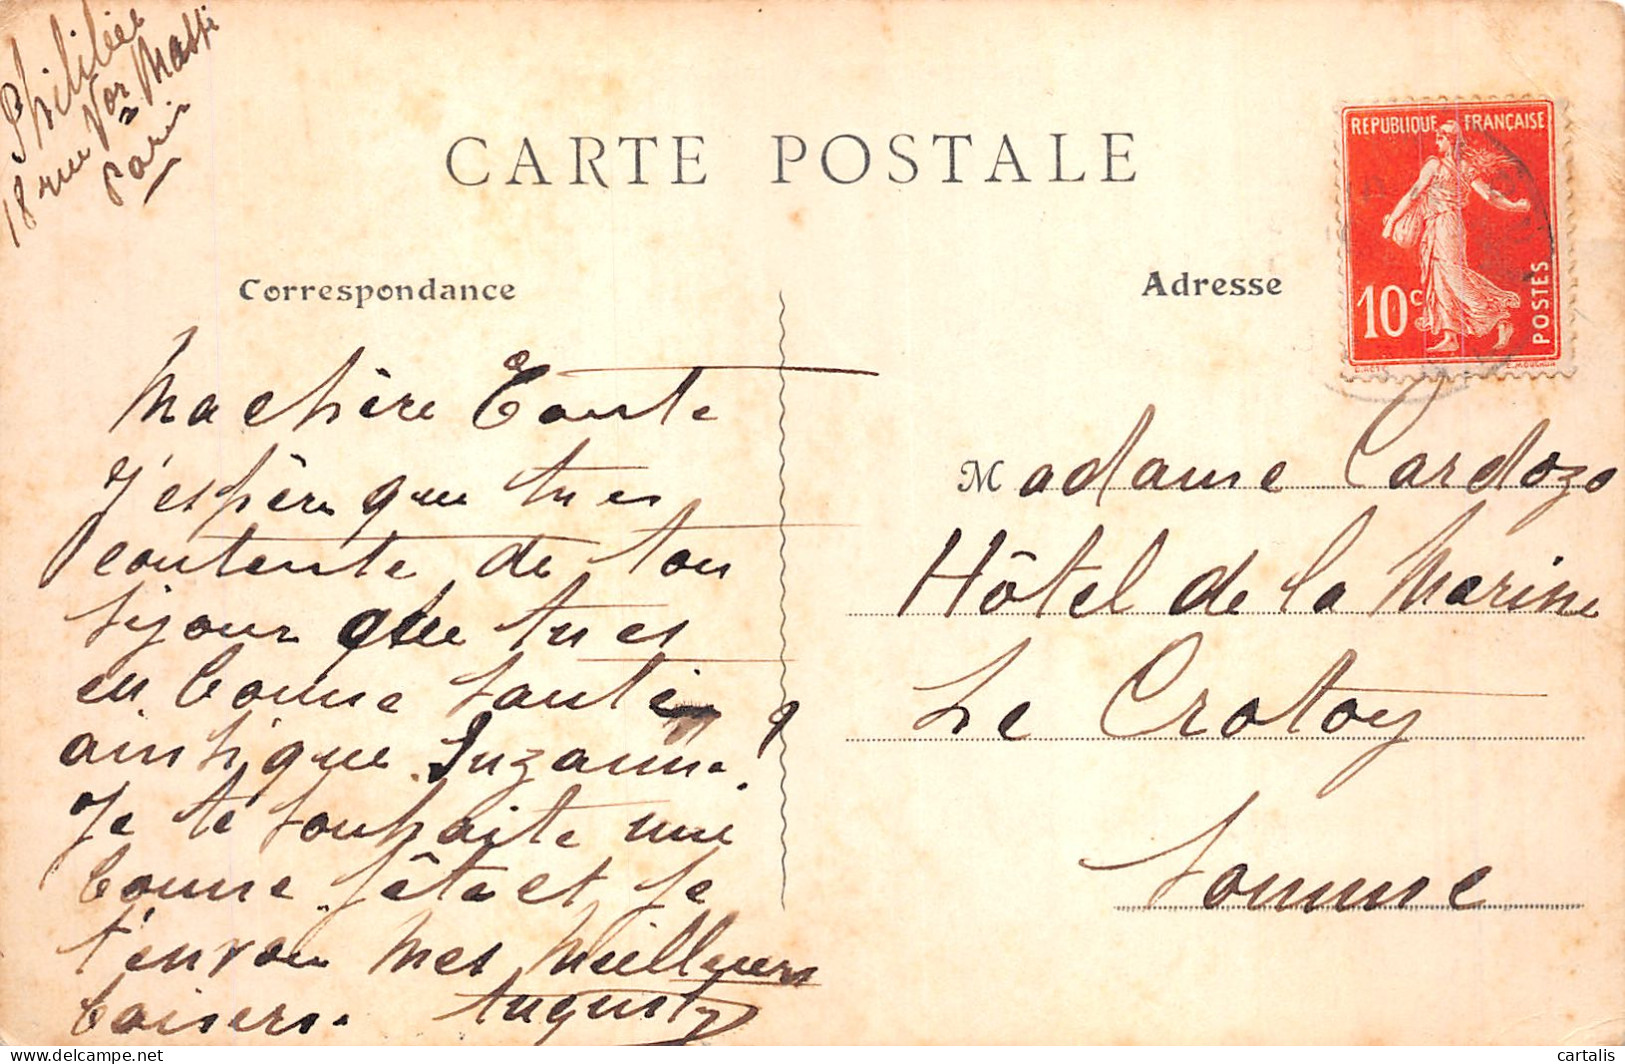 18 rue Vor Massé
Paris
CARTE POSTALE
REPUBLIQUE FRANÇAISE
10c
POSTES
Correspondance
Adresse
Ma chère Tante
J'espère que tu es
contente de ton
séjour que tu es
en bonne santé
ainsi que Suzanne.
Je te souhaite une
bonne fête et je
t'envoie mes meilleurs
baisers.
Madame Cardozo
Hôtel de la Marine
Le Crotoy
Somme
cartalis